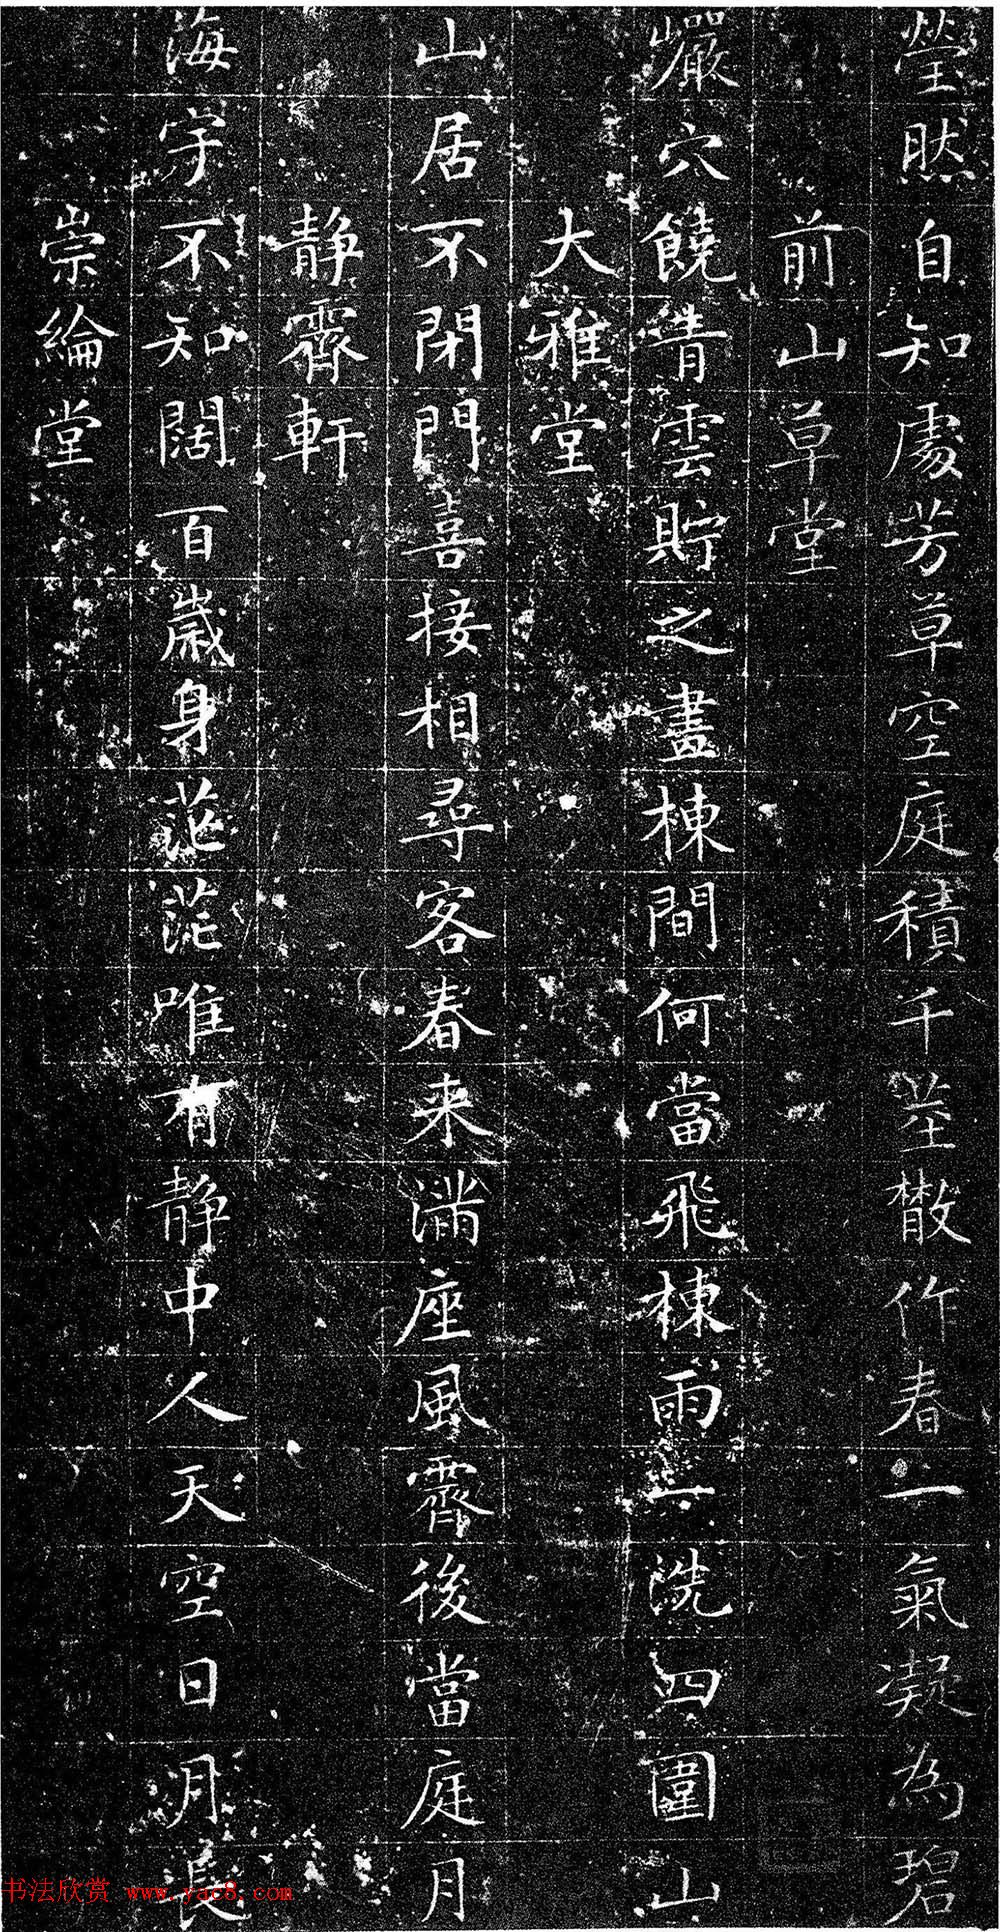 瑩然自知處芳草空庭積千莖散作春一氣凝為碧
前山草堂
巖穴饒青雲貯之畫棟間何當飛棟雨一洗四圍山
大雅堂
山居不閉門喜接相尋客春来滿座風霽後當庭月
静霽軒
海宇不知闊百歲身茫茫唯有静中人天空日月長
崇綸堂
书法欣赏 www.yac8.com